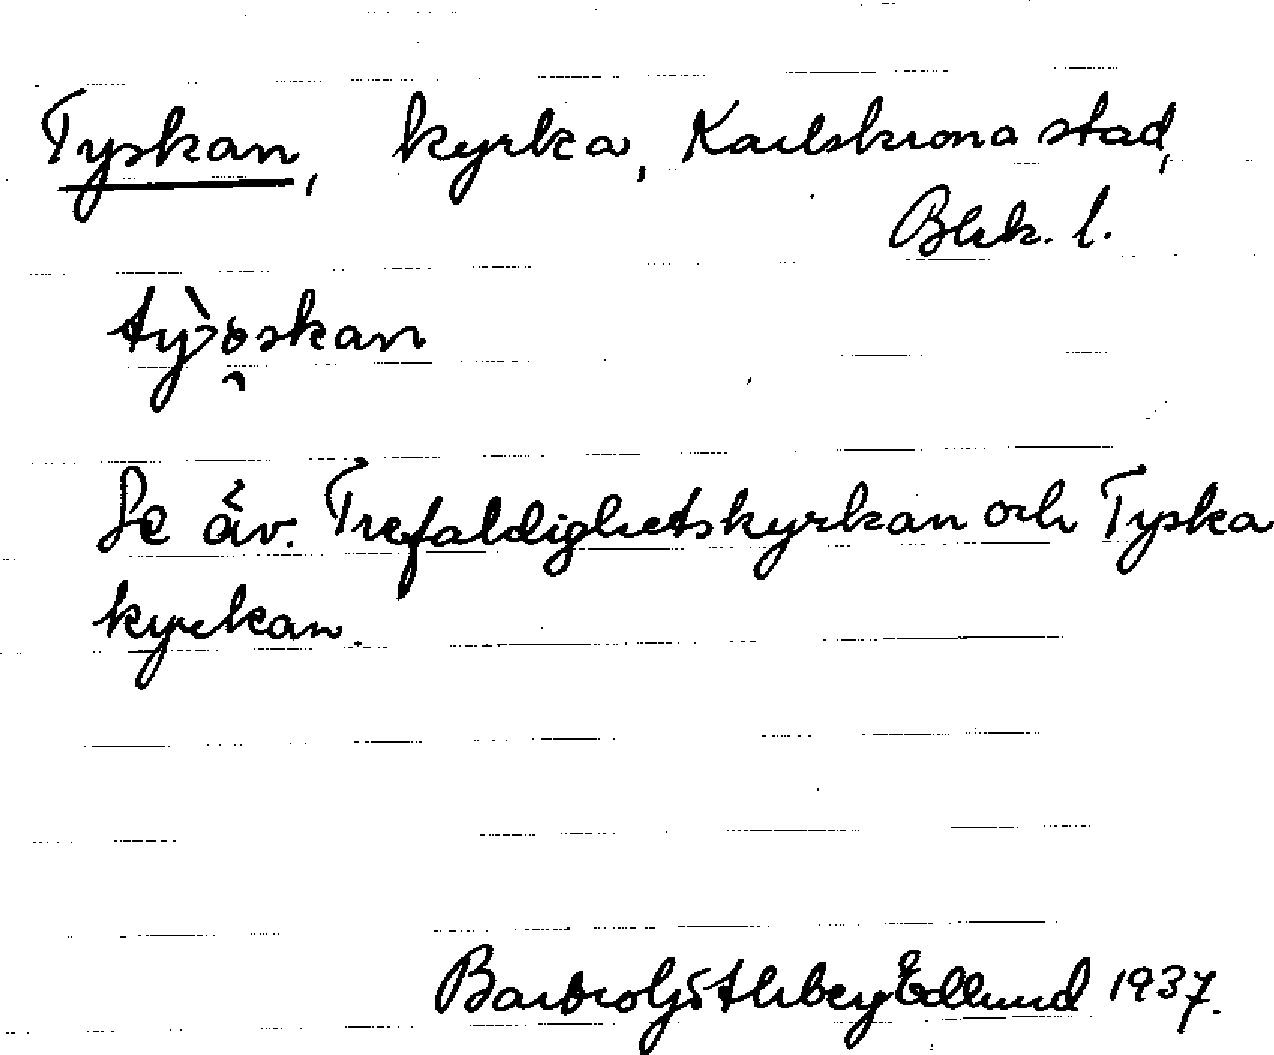 Tyskan, kyrka, Karlskrona stad,
Blek. l.
Se äv. Trefaldighetskyrkan och Tyska
kyrkan.
Barbro Edlund 1937.